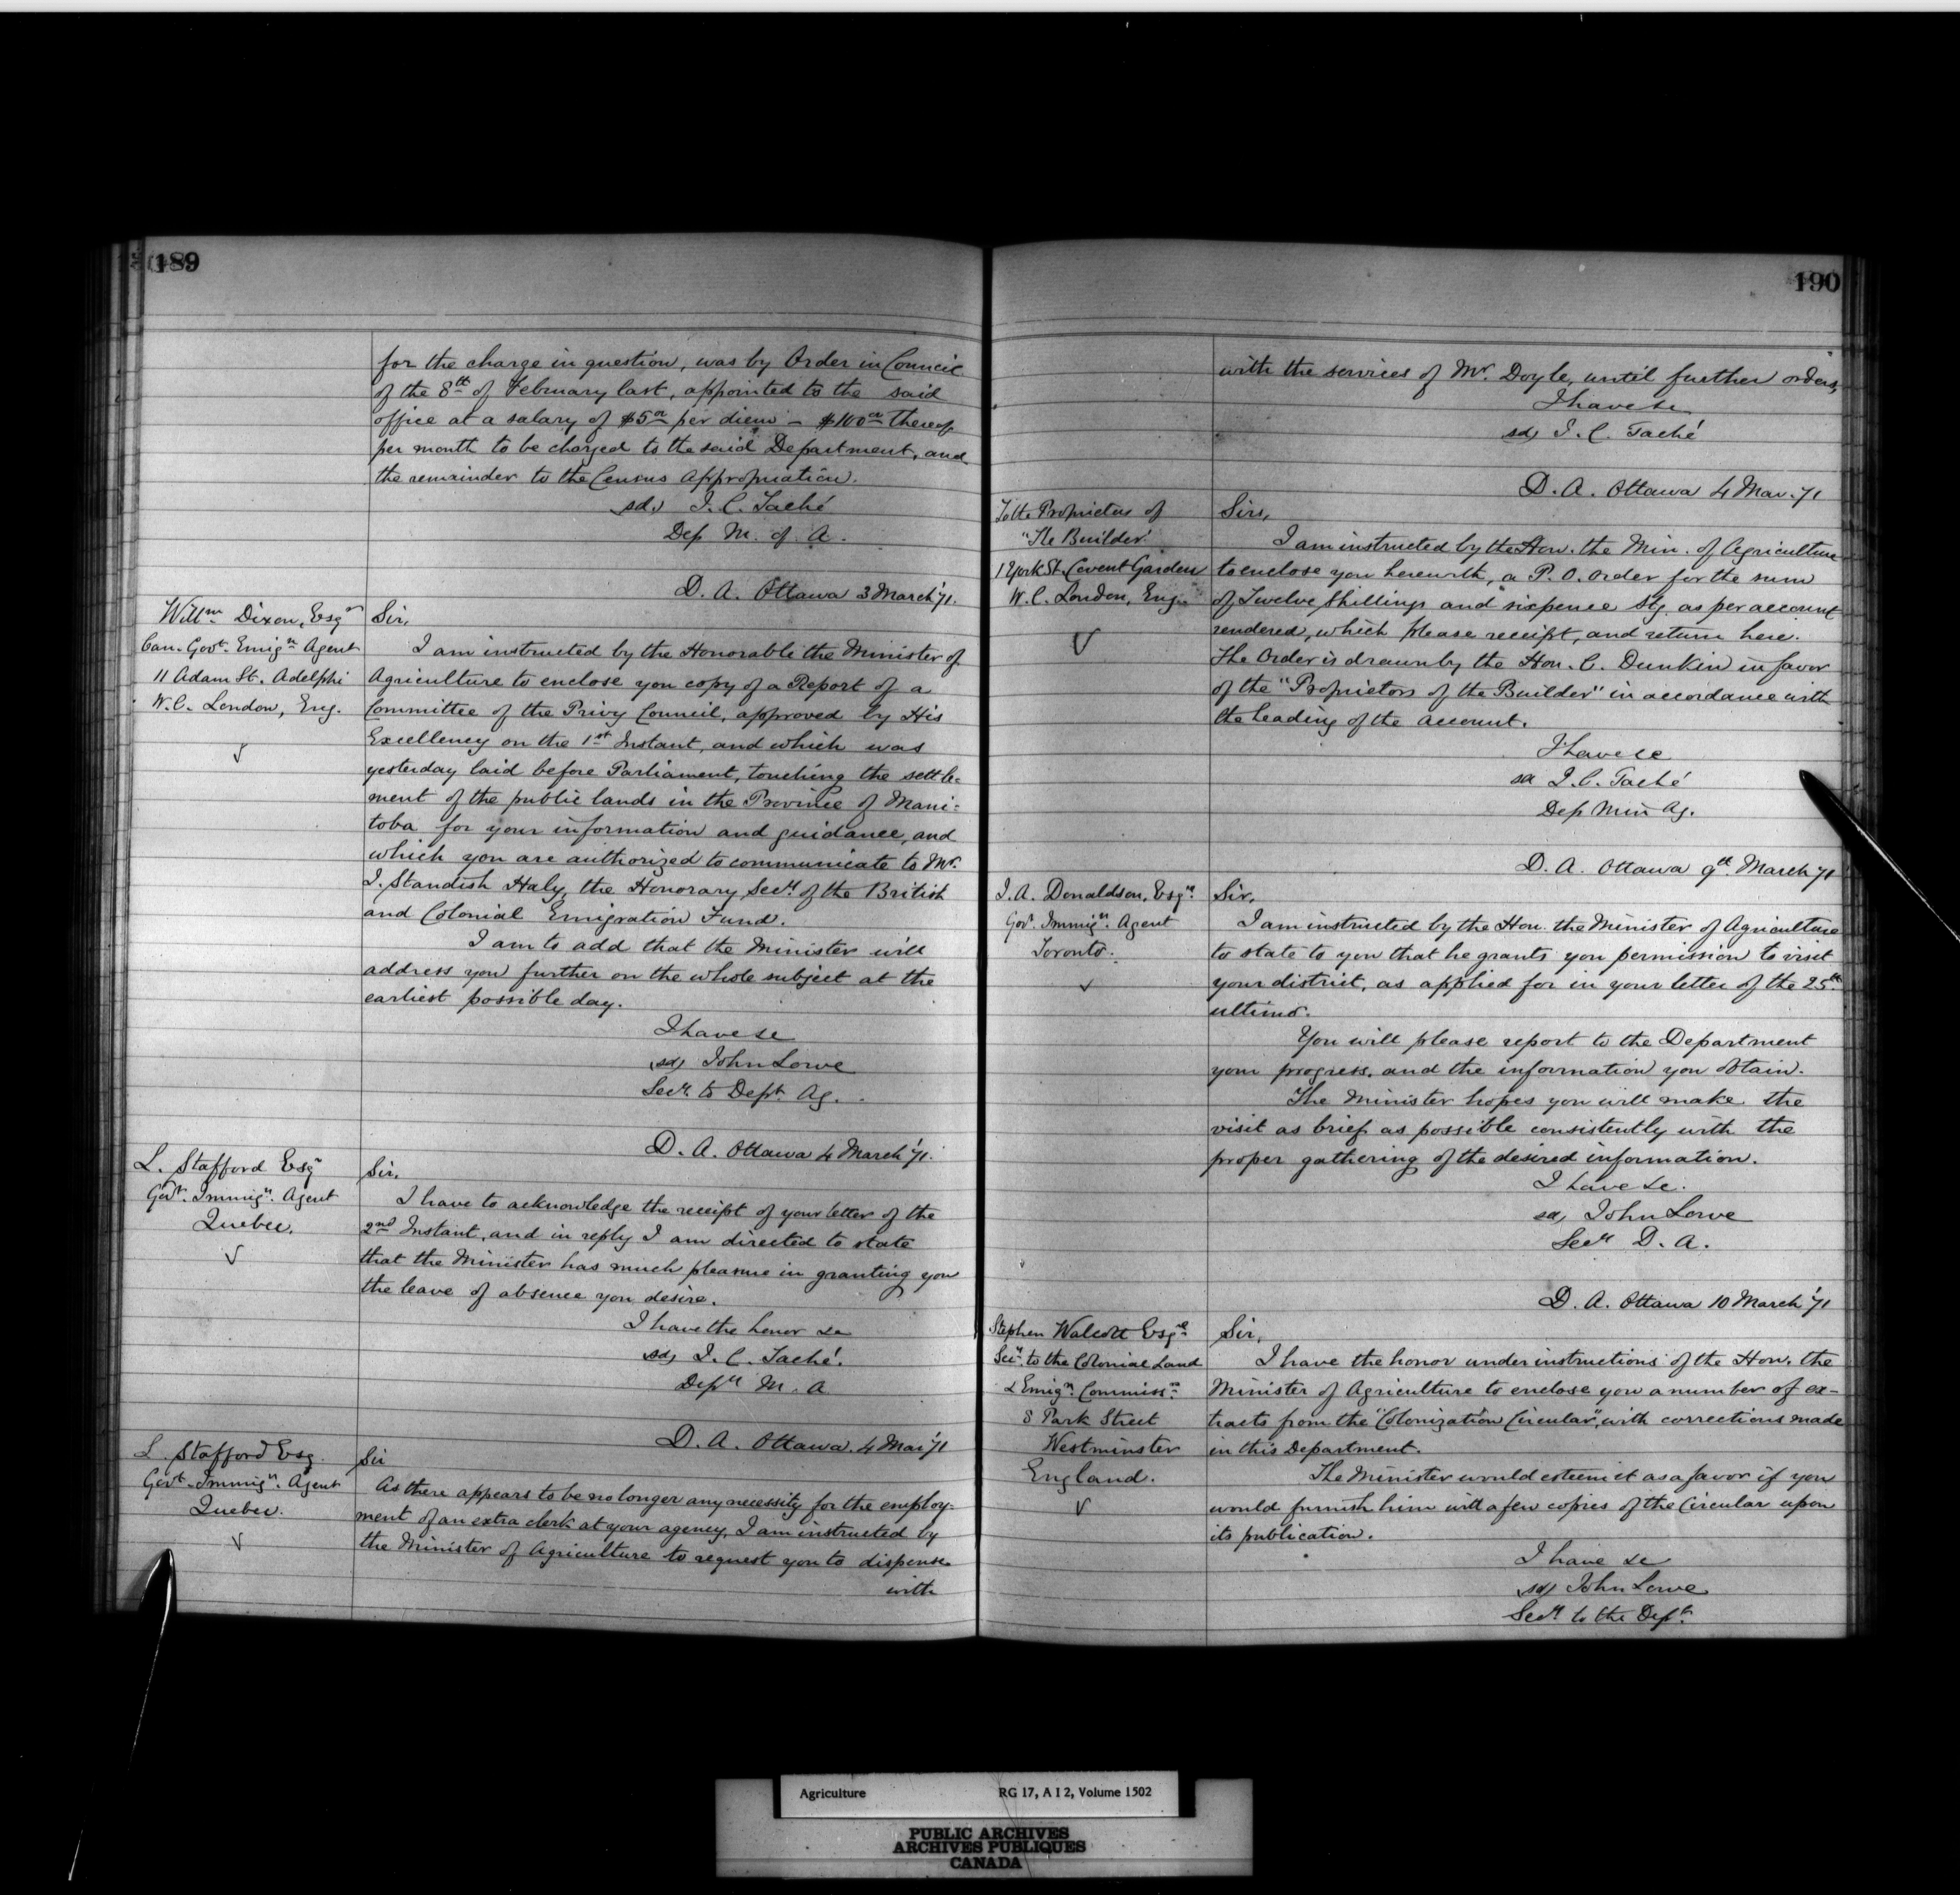 189
for the charge in question, was by Order in Council
of the 8th of February last, appointed to the said
office at a salary of $5 00 per diem – $100 00 thereof
per month to be charged to the said Department, and
the remainder to the Census Appropriation.
sd, J. C. Taché
Dep M. of A.
D. A. Ottawa 3 March '71.
Willm Dixon, Esqre
Can. Govt. Emign Agent
11 Adam St. Adelphi
W.C. London, Eng.
Sir,
I am instructed by the Honorable the Minister of
Agriculture to enclose you copy of a Report of a
Committee of the Privy Council, approved by His
Excellency on the 1st Instant, and which was
yesterday laid before Parliament, touching the settle=
ment of the public lands in the Province of Mani=
toba for your information and guidance, and
which you are authorized to communicate to Mr.
J. Standish Haly, the Honorary Secy of the British
and Colonial Emigration Fund.
I am to add that the Minister will
address you further on the whole subject at the
earliest possible day.
I have &c
sd, John Lowe
Secy. to Dept. Ag.
D. A. Ottawa 4 March '71.
L. Stafford Esqr
Govt. Immign. Agent
Quebec.
Sir,
I have to acknowledge the receipt of your letter of the
2nd Instant, and in reply I am directed to state
that the Minister has much pleasure in granting you
the leave of absence you desire.
I have the honor &c
sd, J. C. Taché.
Depy M. A
D. A. Ottawa 4 Mar '71
L. Stafford Esq.
Govt. Immign. Agent
Quebec.
Sir
As there appears to be no longer any necessity for the employ=
ment of an extra clerk at your agency, I am instructed by
the Minister of Agriculture to request you to dispense
with
190
with the services of Mr. Doyle, until further orders,
I have &c
sd, J. C. Taché
D. A. Ottawa 4 Mar. '71
To the Proprietors of
"The Builder"
1 York St. Covent Garden
W.C. London, Eng.
Sirs,
I am instructed by the Hon. the Min. of Agriculture
to enclose you herewith, a P. O. Order for the sum
of Twelve Shillings and sixpence Stg. as per account
rendered, which please receipt, and return here.
The Order is drawn by the Hon. C. Dunkin in favor
of the "Proprietors of the Builder" in accordance with
the heading of the account.
I have &c
sd J. C. Taché
Dep Min Ag.
D. A. Ottawa 9th March '71
J. A. Donaldson, Esqre
Govt. Immign. Agent
Toronto.
Sir,
I am instructed by the Hon. the Minister of Agriculture
to state to you that he grants you permission to visit
your district, as applied for in your letter of the 25th
ultimo.
You will please report to the Department
your progress, and the information you obtain.
The Minister hopes you will make the
visit as brief as possible consistently with the
proper gathering of the desired information.
I have &c.
sd, John Lowe
Secy D. A.
D. A. Ottawa 10 March '71
Stephen Walcott Esqre
Secy. to the Colonial Land
& Emign. Commissn.
8 Park Street
Westminster
England.
Sir,
I have the honor under instructions of the Hon. the
Minister of Agriculture to enclose you a number of ex-
tracts from the "Colonization Circular", with corrections made
in this Department.
The Minister would esteem it as a favor if you
would furnish him with a few copies of the Circular upon
its publication.
I have &c
sd, John Lowe
Secy to the Dept.
Agriculture RG 17, A I 2, Volume 1502
PUBLIC ARCHIVES
ARCHIVES PUBLIQUES
CANADA